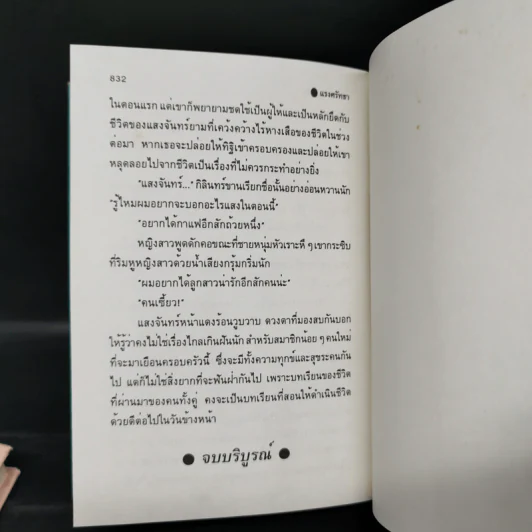 832
● แรงศรัทธา
ในตอนแรก แต่เขาก็พยายามชดใช้เป็นผู้ให้และเป็นหลักยึดกับ
ชีวิตของแสงจันทร์ยามที่เคว้งคว้างไร้หางเสือของชีวิตในช่วง
ต่อมา หากเธอจะปล่อยให้ทิฐิเข้าครอบครองและปล่อยให้เขา
หลุดลอยไปจากชีวิตเป็นเรื่องที่ไม่ควรกระทำอย่างยิ่ง
"แสงจันทร์..." กิลินทร์ขานเรียกชื่อนั้นอย่างอ่อนหวานนัก
"รู้ไหมผมอยากจะบอกอะไรแสงในตอนนี้"
"อยากได้กาแฟอีกสักถ้วยหนึ่ง"
หญิงสาวพูดดักคอขณะที่ชายหนุ่มหัวเราะหึ ๆ เขากระซิบ
ที่ริมหูหญิงสาวด้วยน้ำเสียงกรุ้มกริ่มนัก
"ผมอยากได้ลูกสาวน่ารักอีกสักคนน่ะ"
"คนเซี้ยว!"
แสงจันทร์หน้าแดงร้อนวูบวาบ ดวงตาที่มองสบกันบอก
ให้รู้ว่าคงไม่ใช่เรื่องไกลเกินฝันนัก สำหรับสมาชิกน้อย ๆ คนใหม่
ที่จะมาเยือนครอบครัวนี้ ซึ่งจะมีทั้งความทุกข์และสุขระคนกัน
ไป แต่ก็ไม่ใช่สิ่งยากที่จะฟันฝ่ากันไป เพราะบทเรียนของชีวิต
ที่ผ่านมาของคนทั้งคู่ คงจะเป็นบทเรียนที่สอนให้ดำเนินชีวิต
ด้วยดีต่อไปในวันข้างหน้า
● จบบริบูรณ์ ●